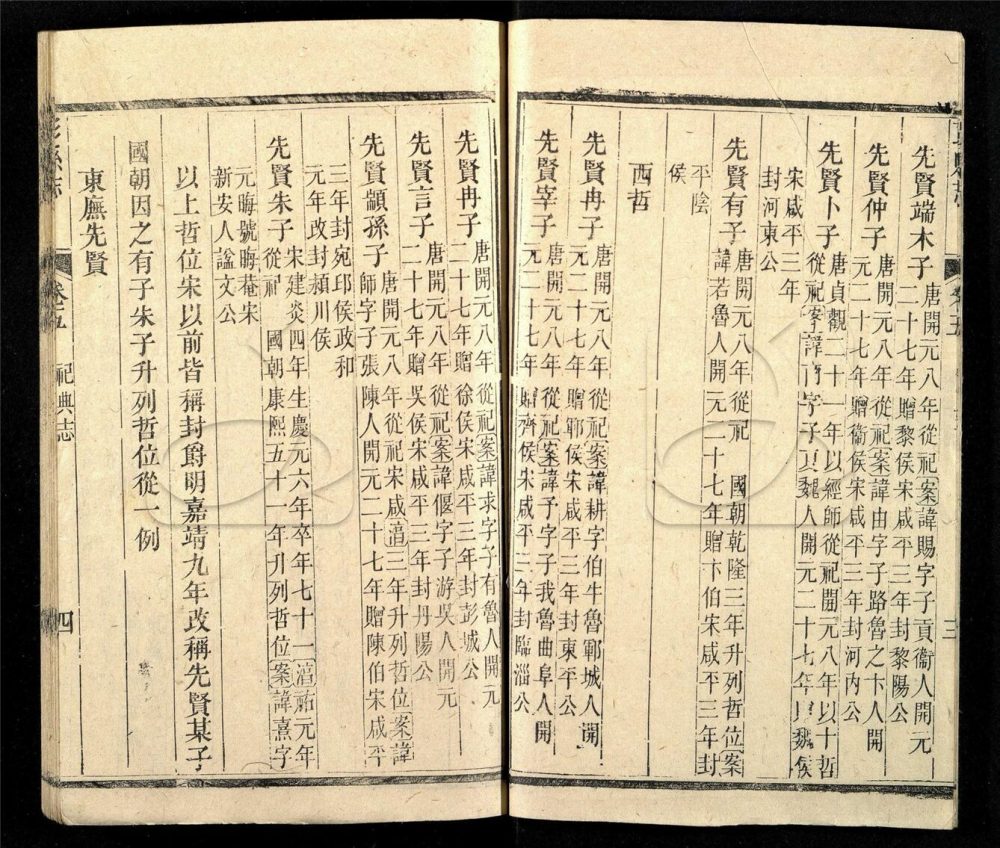 先賢端木子 唐開元八年從祀案諱賜字子貢衞人開元
二十七年贈黎侯宋咸平三年封黎陽公
先賢仲子 唐開元八年從祀案諱由字子路魯之卞人開
元二十七年贈衞侯宋咸平三年封河內公
先賢卜子 唐貞觀二十一年以經師從祀開元八年以十哲
從祀案諱商字子夏魏人開元二十七年贈魏侯
宋咸平三年
封河東公
先賢有子 唐開元八年從祀 國朝乾隆三年升列哲位案
諱若魯人開元二十七年贈卞伯宋咸平三年封
平陰
侯
西哲
先賢冉子 唐開元八年從祀案諱耕字伯牛魯鄆城人開
元二十七年贈鄆侯宋咸平三年封東平公
先賢宰子 唐開元八年從祀案諱予字子我魯曲阜人開
元二十七年贈齊侯宋咸平三年封臨淄公
三
先賢冉子 唐開元八年從祀案諱求字子有魯人開元
二十七年贈徐侯宋咸平三年封彭城公
先賢言子 唐開元八年從祀案諱偃字子游吳人開元
二十七年贈吳侯宋咸平三年封丹陽公
先賢顓孫子 唐開元八年從祀宋咸淳三年升列哲位案諱
師字子張陳人開元二十七年贈陳伯宋咸平
三年封宛邱侯政和
元年改封潁川侯
先賢朱子 宋建炎四年生慶元六年卒年七十一淳祐元年
從祀 國朝康熙五十一年升列哲位案諱熹字
元晦號晦菴宋
新安人諡文公
以上哲位宋以前皆稱封爵明嘉靖九年改稱先賢某子
國朝因之有子朱子升列哲位從一例
東廡先賢
卷十五 祀典志 四